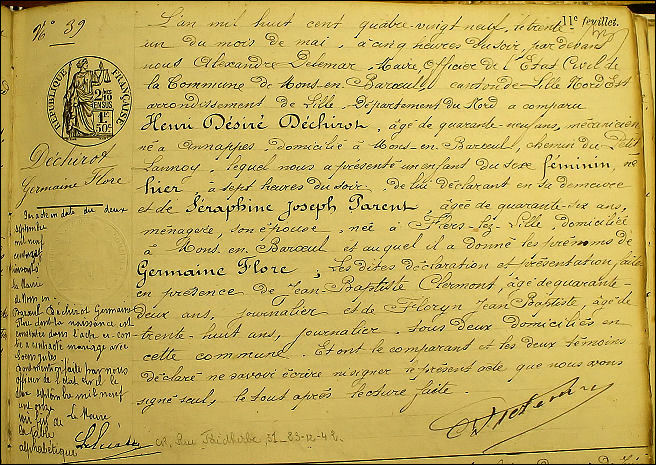 N° 39
11e feuillet.
L'an mil huit cent quatre-vingt neuf, le trente
un du mois de mai, à cinq heures du soir, par devant
nous Alexandre Delemar, Maire, Officier de l'Etat Civil de
la Commune de Mons-en-Barœul, canton de Lille Nord Est
arrondissement de Lille, Département du Nord a comparu
Henri Désiré Déchirot, âgé de quarante-neuf ans, mécanicien
né à Annappes, domicilié à Mons-en-Barœul, chemin du Petit
Lannoy, lequel nous a présenté un enfant du sexe féminin, né
hier, à sept heures du soir, de lui déclarant en sa demeure
et de Séraphine Joseph Parent, âgée de quarante-six ans,
ménagère, son épouse, née à Flers-lez-Lille, domiciliée
à Mons-en-Barœul et auquel il a donné les prénoms de
Germaine Flore, Les dites déclaration et présentation faites
en présence de Jean Baptiste Clermont, âgé de quarante-
deux ans, journalier et de Floryn Jean Baptiste, âgé de
trente-huit ans, journalier, tous deux domiciliés en
cette commune. Et ont le comparant et les deux témoins
déclaré ne savoir écrire ni signer le présent acte que nous avons
signé seul, le tout après lecture faite
RÉPUBLIQUE FRANÇAISE
2/10 EN SUS
1F 50c
Déchirot
Germaine Flore
Par acte en date du deux
septembre
mil neuf
le Maire
de Mons en
Barœul Déchirot Germaine
Flore dont la naissance est
constatée dans l'acte ci-contre
a contracté mariage avec
Jules
mention faite par nous
officier de l'état civil le
septembre mil neuf
cent onze
le Maire
la table
alphabétique
Rue Faidherbe 51_ 23-12-42.